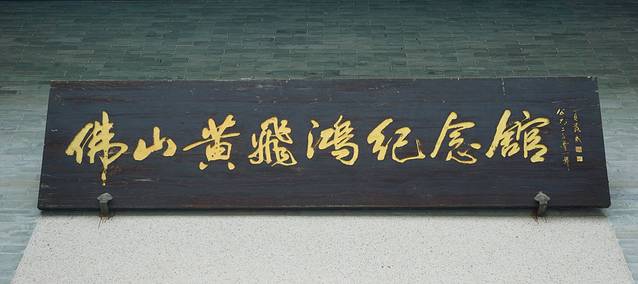 佛山黄飛鴻纪念館